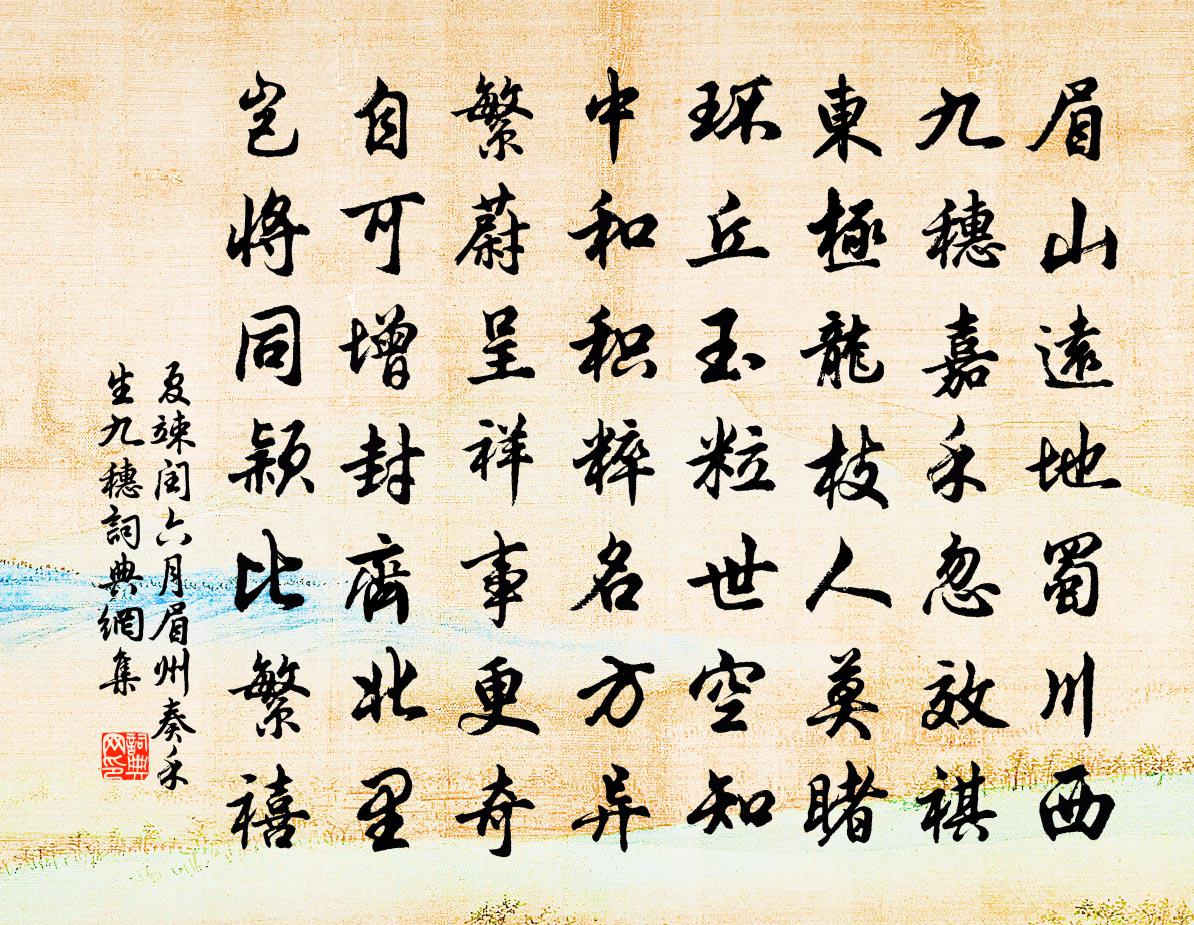 眉山遠地蜀川西
九穗嘉禾忽效祺
東極龍枝人莫睹
环丘玉粒世空知
中和积粹名方异
繁蔚呈祥事更奇
自可增封齊北里
岂將同穎比繁禧
夏竦闰六月眉州奏禾
生九穗詞典網集
詞典网印